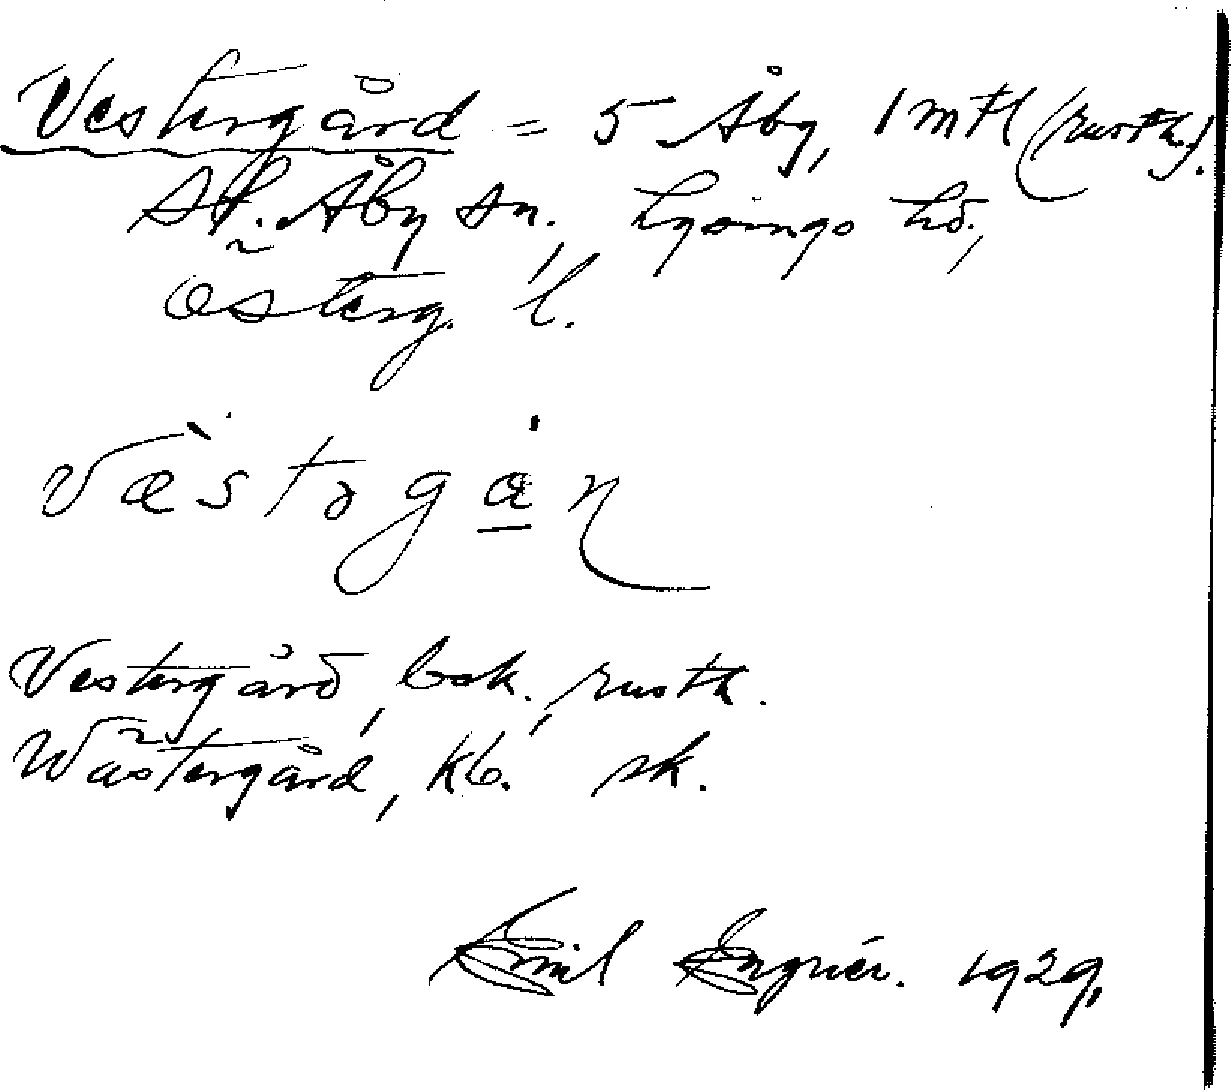 Vestergård = 5 Åby, 1 mtl (rusth.).
St. Åby sn., Lysings hd.,
Österg. l.
væ̀stəgȧn
Vestergård, bsk., rusth.
Wästergård, kb. sk.
Emil Engnér. 1929.